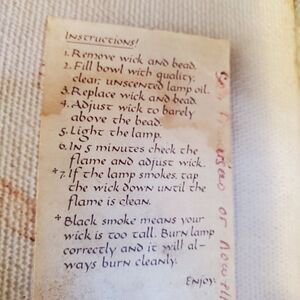 Instructions!
1. Remove wick and bead.
2. Fill bowl with quality,
clear, unscented lamp oil.
3. Replace wick and bead.
4. Adjust wick to barely
above the bead.
5. Light the lamp.
6. In 5 minutes check the
flame and adjust wick.
*7. If the lamp smokes, tap
the wick down until the
flame is clean.
* Black smoke means your
wick is too tall. Burn lamp
correctly and it will al-
ways burn cleanly.
Enjoy.